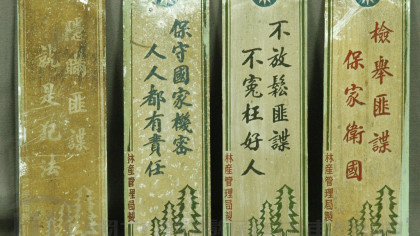 檢舉匪諜
保家衛國
林產管理局製
不放鬆匪諜
不冤枉好人
林產管理局製
保守國家機密
人人都有責任
林產管理局製
隱瞞匪諜
就是犯法